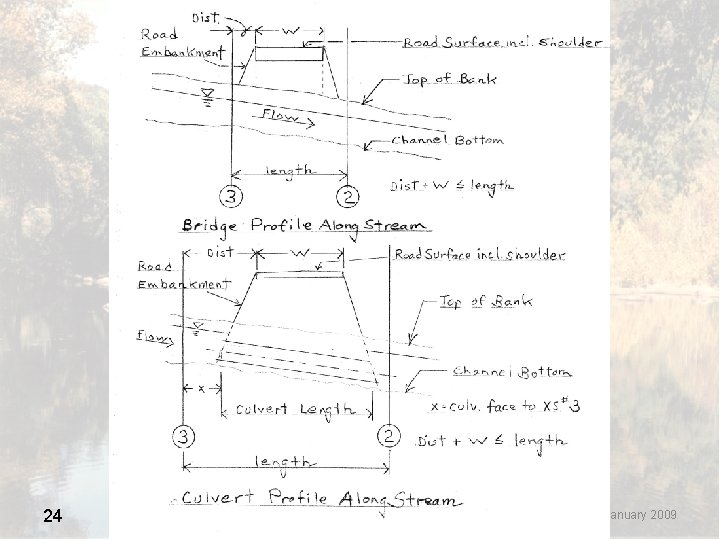 Dist. W
Road
Embankment
Road Surface incl. Shoulder
Top of Bank
Flow
Channel Bottom
length
Dist + W ≤ length
3 2
Bridge Profile Along Stream
Dist W
Road Surface incl. Shoulder
Road
Embankment
Top of Bank
Flow
Channel Bottom
x
Culvert Length
x = culv. face to XS #3
3 2
Dist + W ≤ length
length
Culvert Profile Along Stream
24
anuary 2009